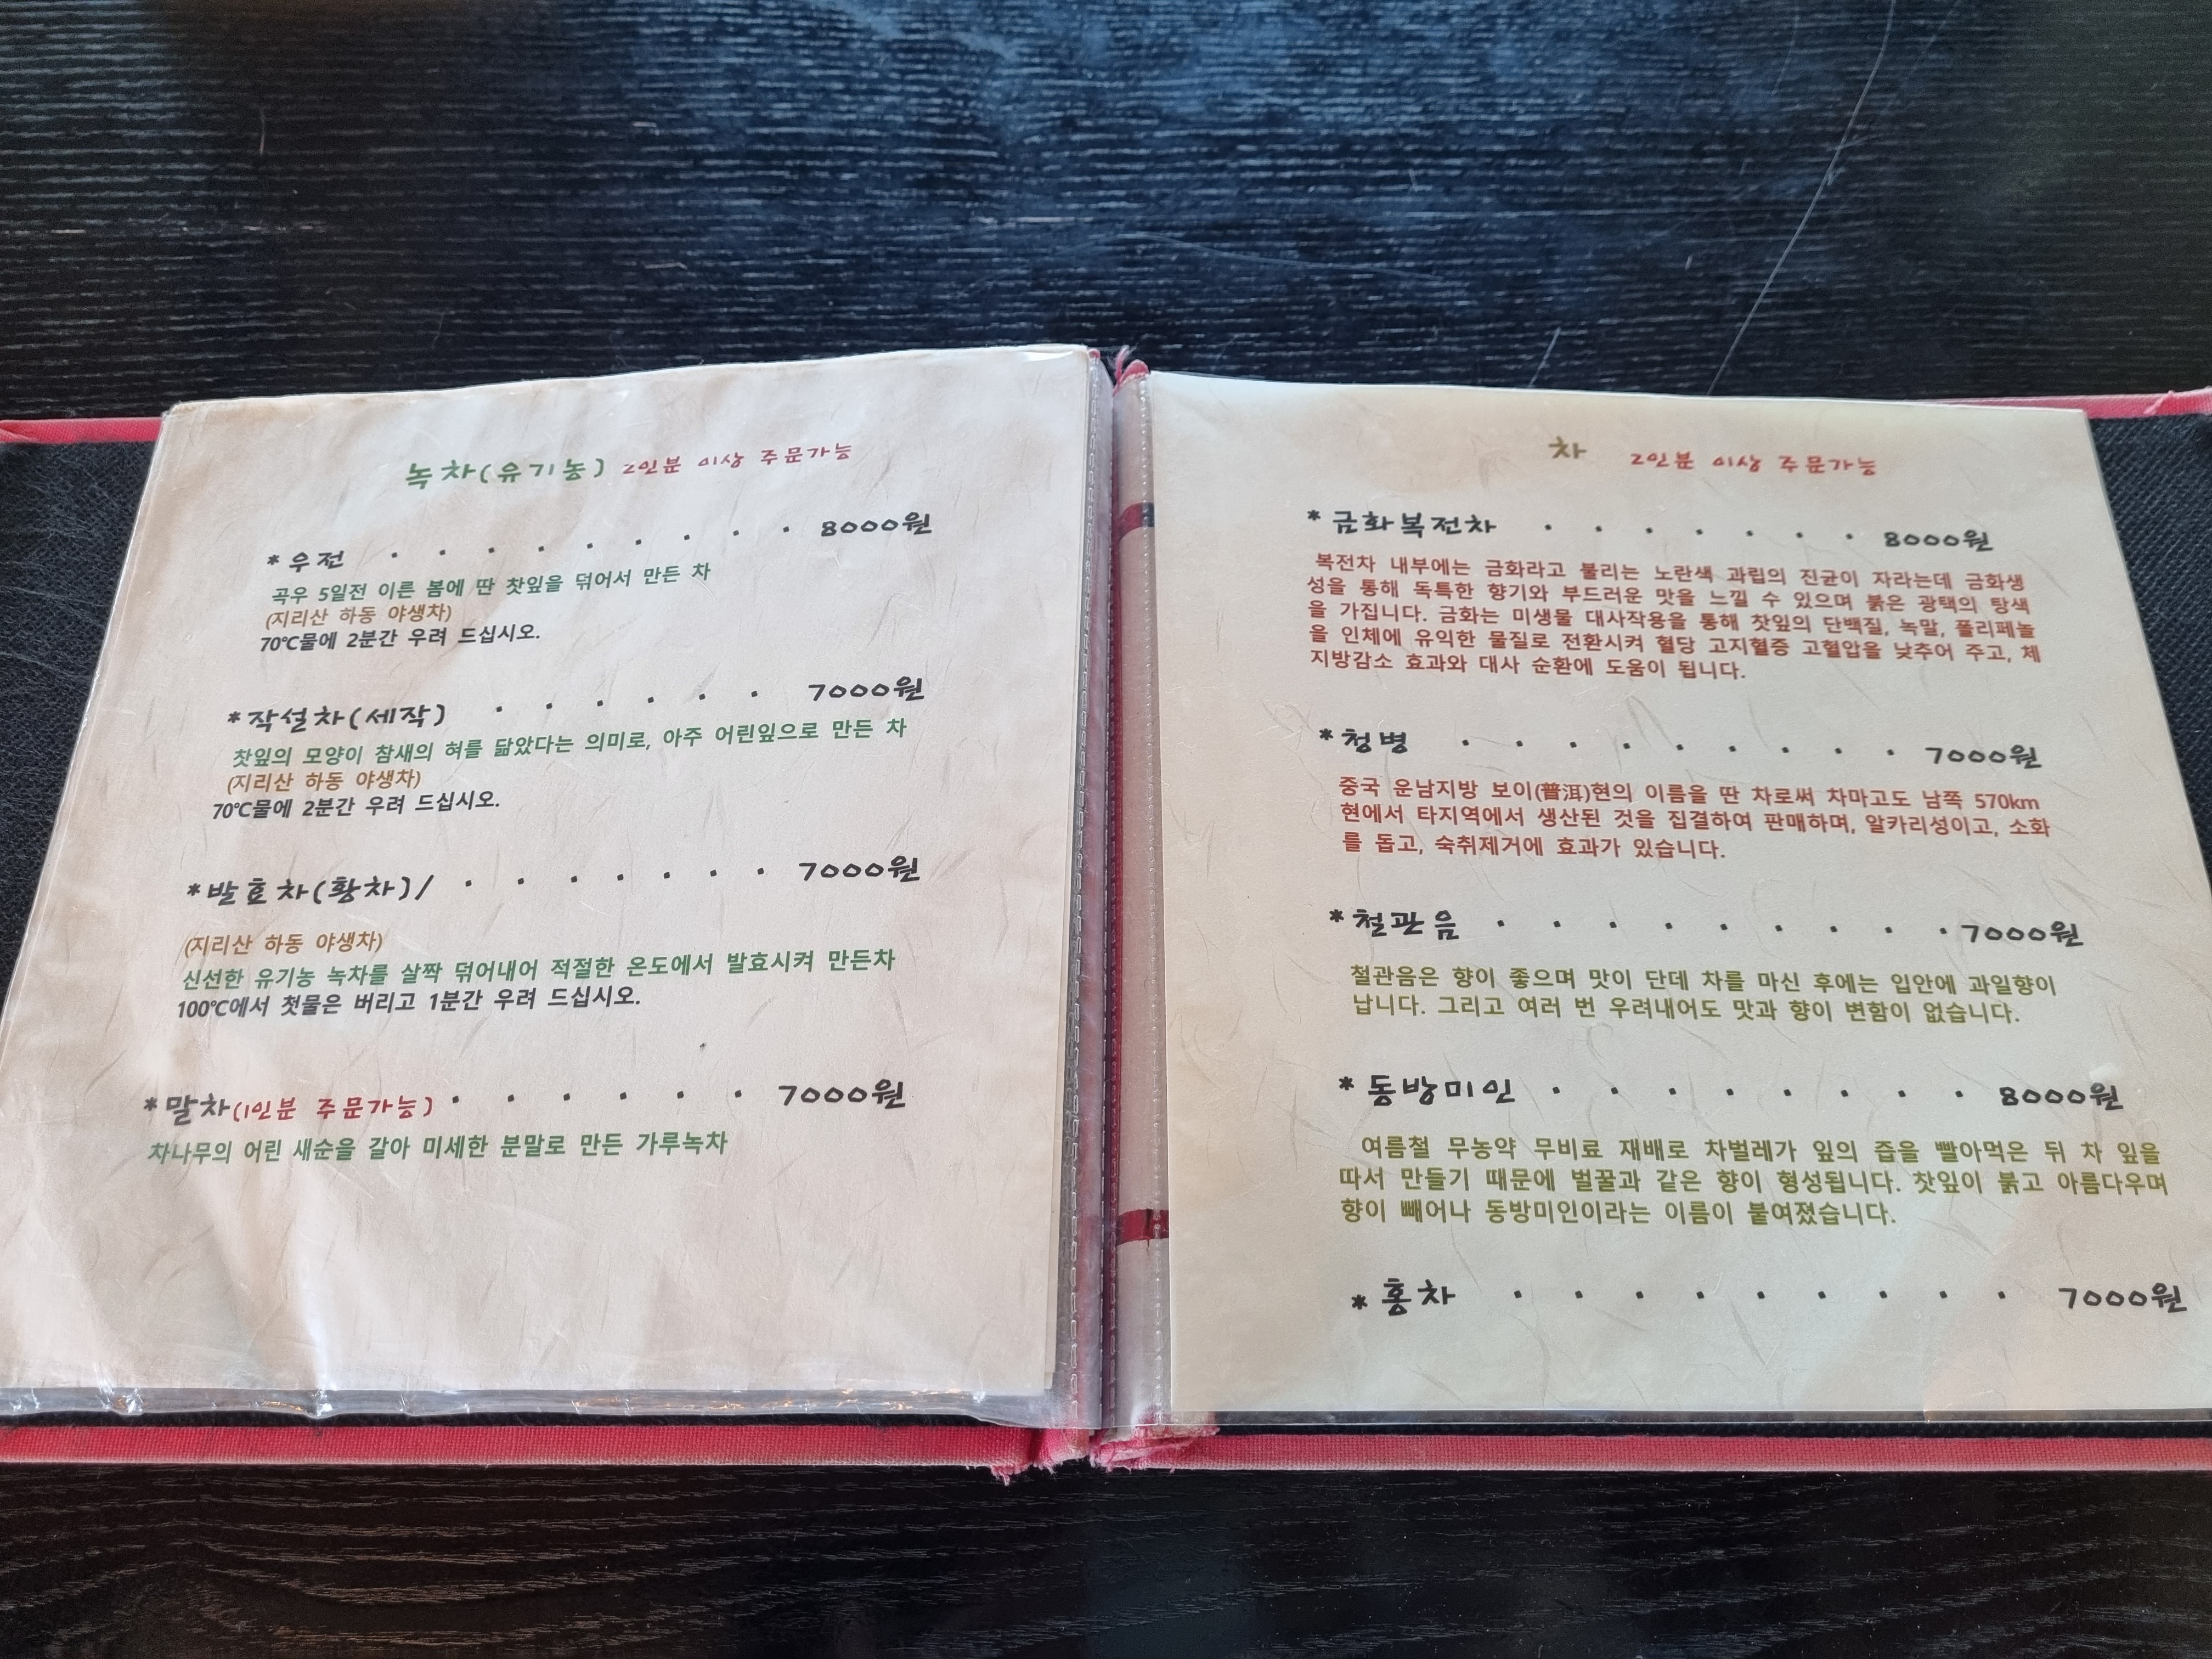 녹차(유기농) 2인분 이상 주문가능
*우전 . . . . . . . . . 8000원
곡우 5일전 이른 봄에 딴 찻잎을 덖어서 만든 차
(지리산 하동 야생차)
70℃물에 2분간 우려 드십시오.
*작설차(세작) . . . . . . 7000원
찻잎의 모양이 참새의 혀를 닮았다는 의미로, 아주 어린잎으로 만든 차
(지리산 하동 야생차)
70℃물에 2분간 우려 드십시오.
*발효차(황차)/ . . . . . . . 7000원
(지리산 하동 야생차)
신선한 유기농 녹차를 살짝 덖어내어 적절한 온도에서 발효시켜 만든차
100℃에서 첫물은 버리고 1분간 우려 드십시오.
*말차(1인분 주문가능) . . . . . . 7000원
차나무의 어린 새순을 갈아 미세한 분말로 만든 가루녹차
차 2인분 이상 주문가능
*금화복전차 . . . . . . . 8000원
복전차 내부에는 금화라고 불리는 노란색 과립의 진균이 자라는데 금화생
성을 통해 독특한 향기와 부드러운 맛을 느낄 수 있으며 붉은 광택의 탕색
을 가집니다. 금화는 미생물 대사작용을 통해 찻잎의 단백질, 녹말, 폴리페놀
을 인체에 유익한 물질로 전환시켜 혈당 고지혈증 고혈압을 낮추어 주고, 체
지방감소 효과와 대사 순환에 도움이 됩니다.
*청병 . . . . . . . . . 7000원
중국 운남지방 보이(普洱)현의 이름을 딴 차로써 차마고도 남쪽 570km
현에서 타지역에서 생산된 것을 집결하여 판매하며, 알카리성이고, 소화
를 돕고, 숙취제거에 효과가 있습니다.
*철관음 . . . . . . . . . 7000원
철관음은 향이 좋으며 맛이 단데 차를 마신 후에는 입안에 과일향이
납니다. 그리고 여러 번 우려내어도 맛과 향이 변함이 없습니다.
*동방미인 . . . . . . . . 8000원
여름철 무농약 무비료 재배로 차벌레가 잎의 즙을 빨아먹은 뒤 차 잎을
따서 만들기 때문에 벌꿀과 같은 향이 형성됩니다. 찻잎이 붉고 아름다우며
향이 빼어나 동방미인이라는 이름이 붙여졌습니다.
*홍차 . . . . . . . . . 7000원